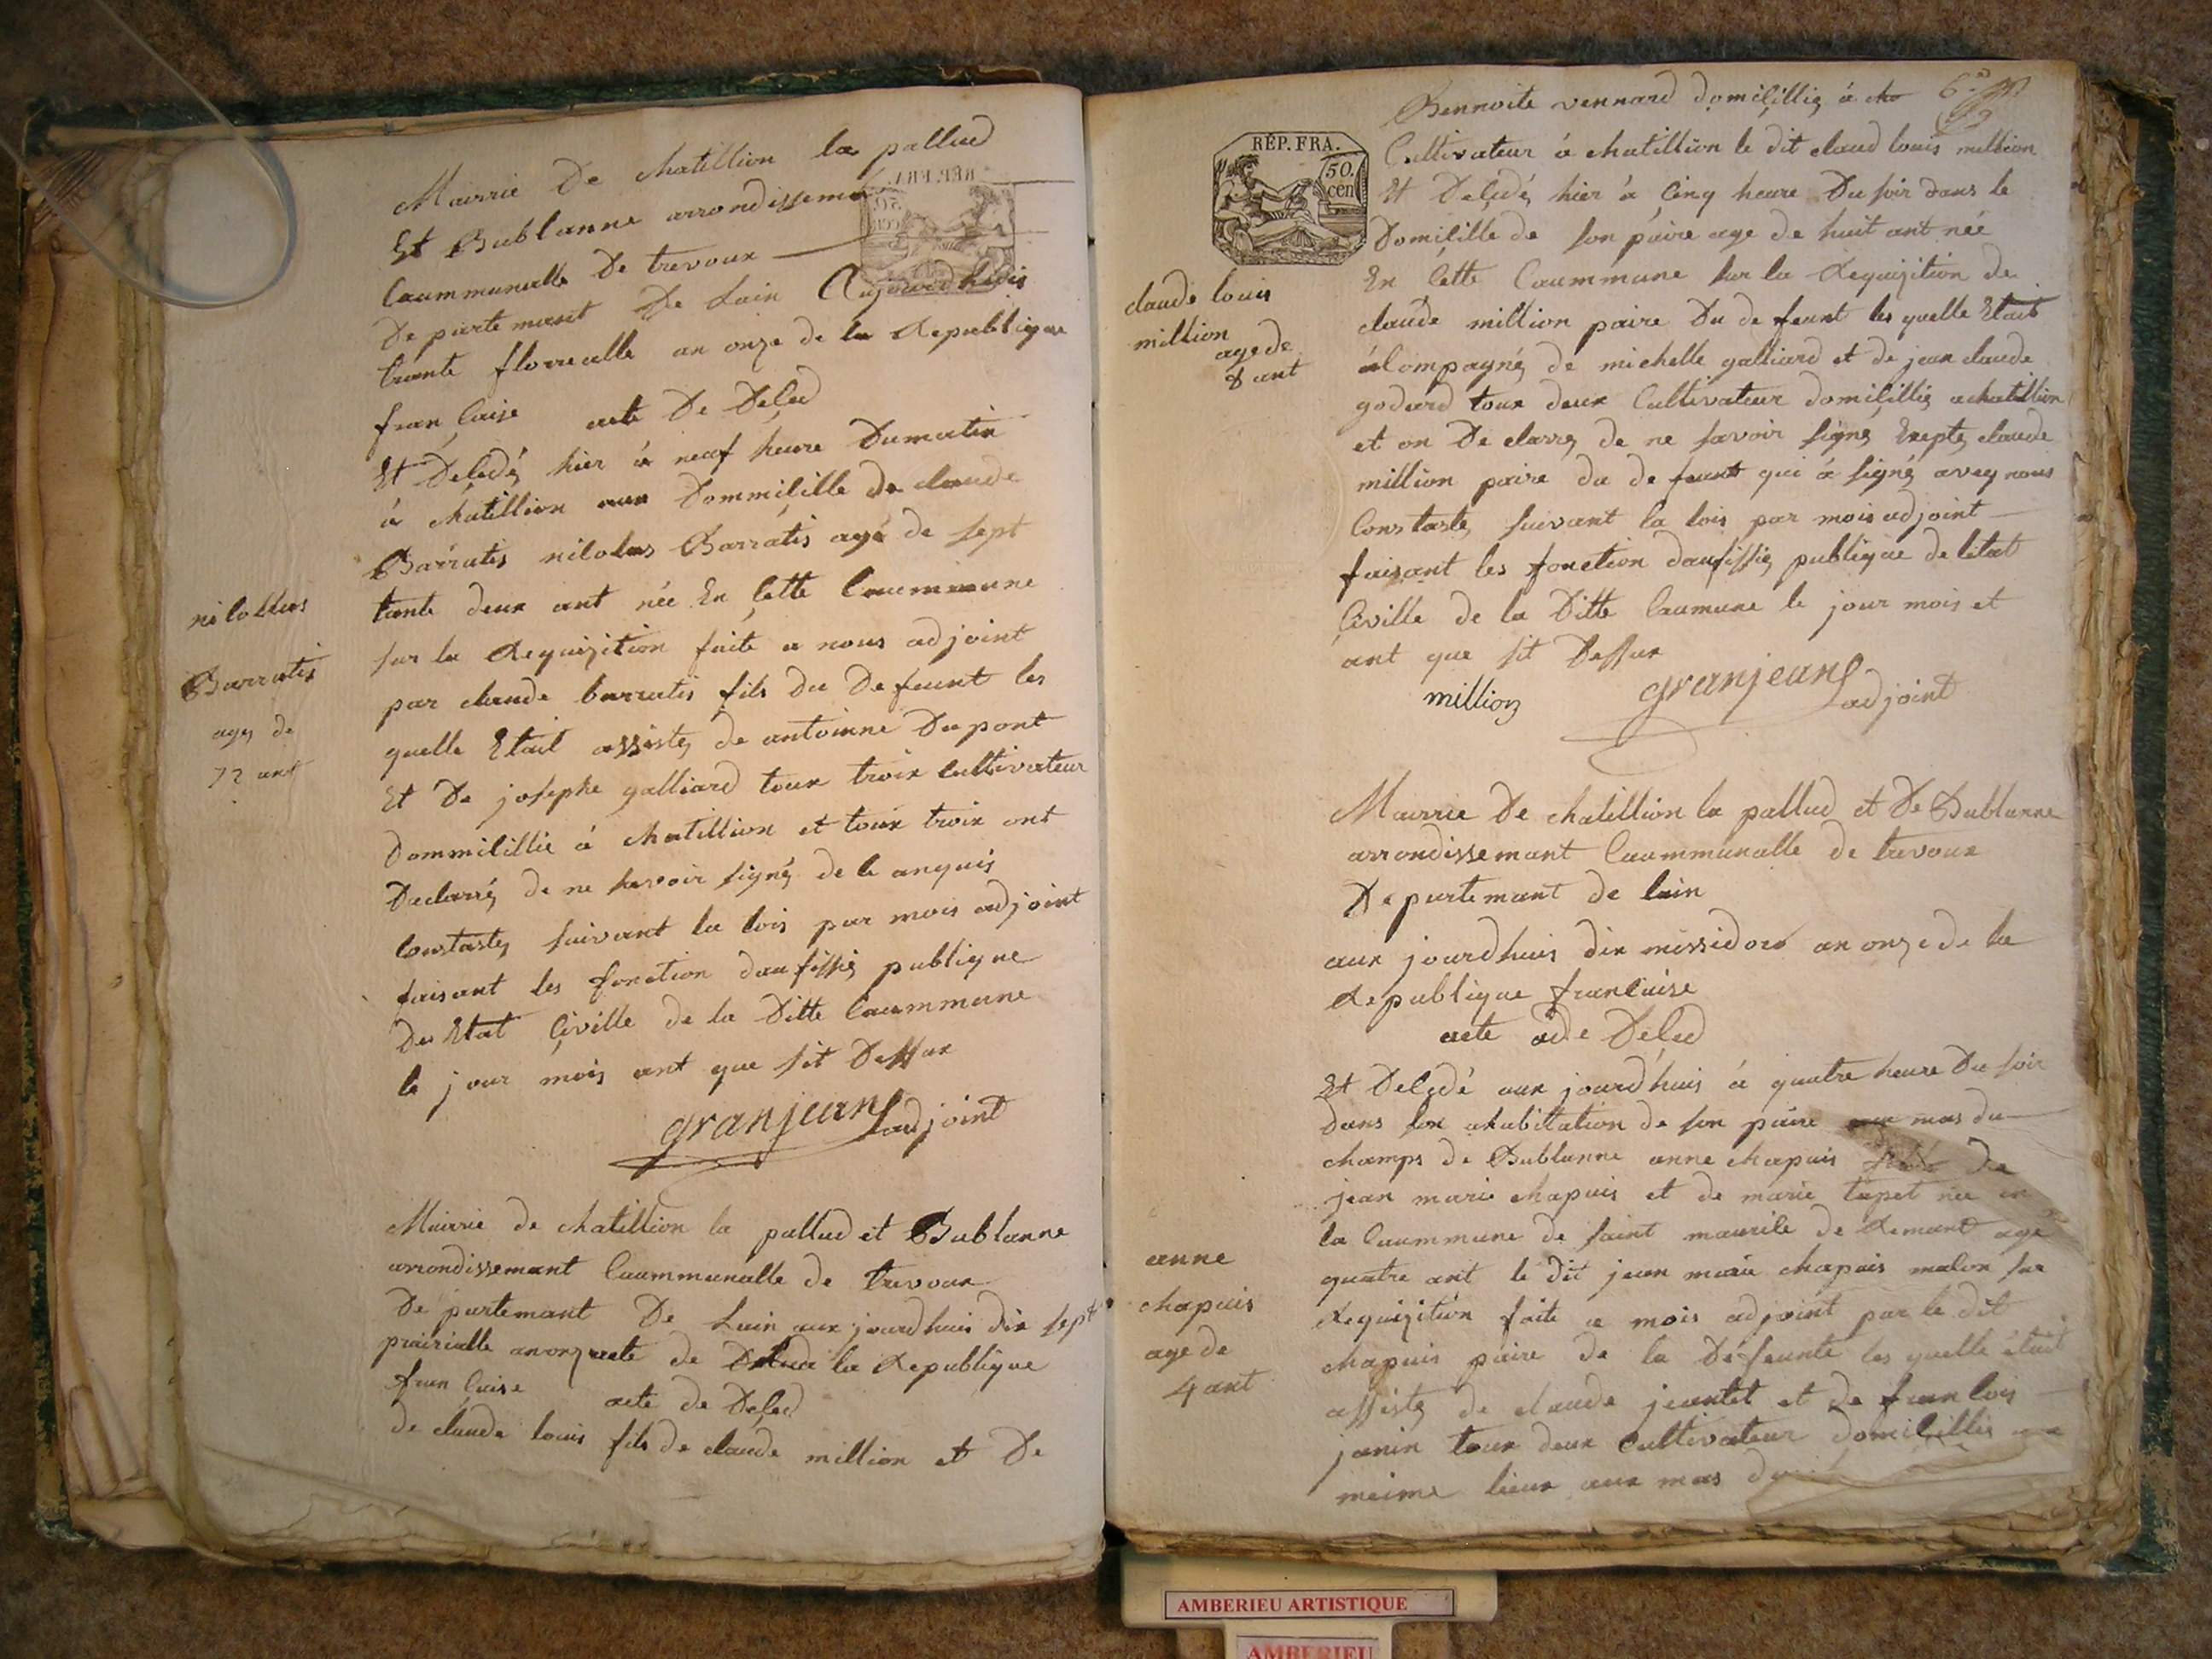 Mairrie De chatillion la pallud
Et Bublanne arrondissemé
Caummunalle De trevoux
Departemant De Lain Aujourdhuis
trante florrealle an onze de la Republique
française acte De Deçed
Et Deçedé hier à neuf heure Dumatin
à chatillion aux Dommicille de claude
Barratis nilolas Barratis agé de sept
tante deux ant née En Cette Caummune
sur la Requizition faite a nous adjoint
par claude barratis fils du Defeunt les
quelle Etait assistez de antoinne Dupont
Et De josephe galliard toux troix cultivateur
Dommicillié à chatillion et toux troix ont
Declarré de ne savoir signé de le anquis
Constastez suivant la lois par mois adjoint
faisant les fonction daufissiez publique
Des Etat Civille de la Ditte Caummune
le jour mois ant que sit Dessux
granjean adjoint
nilollas
Barratis
agez de
72 ant
Mairrie de chatillion la pallud et Bublanne
arrondissemant Caummunalle de trevoux
Departemant De Lain aux jourdhuis dix sept
prairialle anonz acte de la Republique
française acte de Deçed
de claude louis fils de claude million et De
Bennoite vennard domiçilliez à
6.e
RÉP. FRA.
50.
cen
Cultivateur à chatillion le dit claud louis million
Et Deçedé hier à Cinq heure Du soir dans le
Domiçille de son paire age de huit ant née
En Cette Caummune sur la Requizition de
claude million paire Du defeunt les quelle Etait
àCompagnéz de michelle galliard et de jean claude
godard toux deux Cultivateur domiçilliez achatillion
et on De clarrez de ne savoir signez Exeptez claude
million paire du defeunt qui à signé avez nous
Constastez suivant la lois par mois adjoint
faisant les fonction daufissiez publique de létat
Civille de la Ditte Caumune le jour mois et
ant que sit Dessux
million granjean adjoint
claude louis
million
age de
8 ant
Mairrie De chatillion la pallud et De Bublanne
arrondissemant Caummunalle de trevoux
Departemant de lain
aux jourdhuis dix messidore an onze de la
Republique francaise
acte de Deled
Et Deçedé aux jourd'huis à quatre heure Du soir
dans son ahabitation de son paire aux mas du
champs de Bublanne anne chapuis fille De
jean marie chapuis et de marie tapet née en
la Caummune de saint maurile de Remant age
quatre ant le dit jean marie chapuis malon sur
Requizition faite a mois adjoint par le dit
chapuis paire de la Défeunte les quelle était
assistez de claude jeantet et de franlois
janin toux deux Cultivateur domicilliés
meime lieux aux mas
anne
chapuis
age de
4 ant
AMBERIEU ARTISTIQUE
AMBERIEU